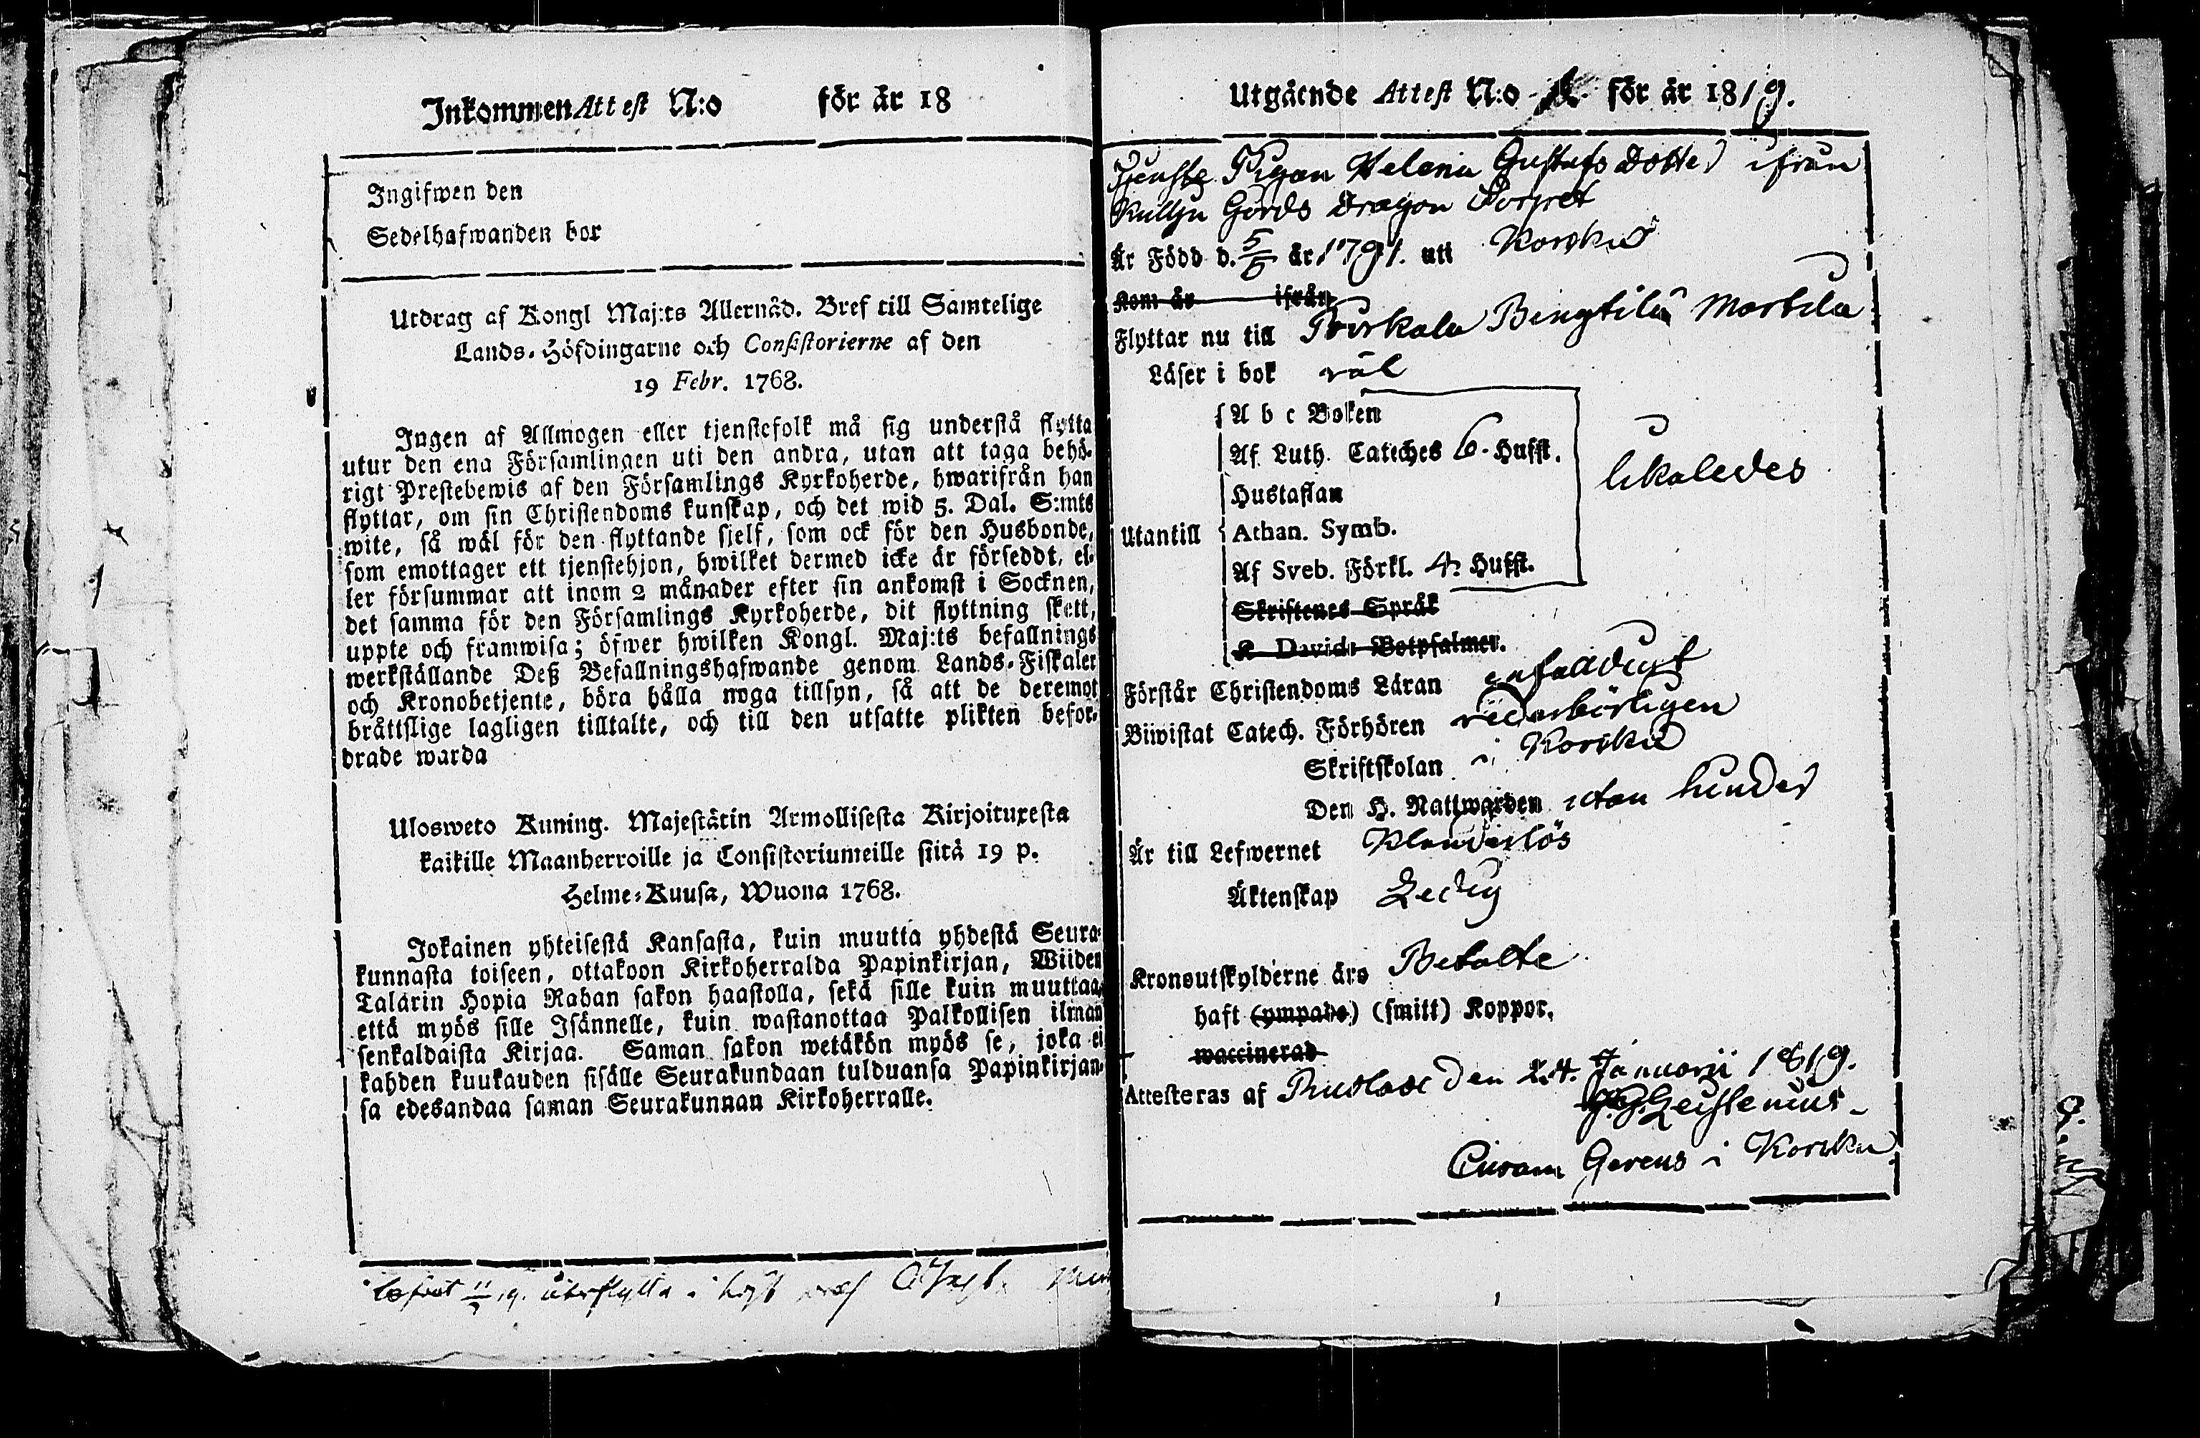 Inkommen Attest N:o för år 18
Ingifwen den
Sedelhafwanden bor
Utdrag af Kongl Maj:ts Allernåd. Bref till Samtelige
Lands-Höfdingarne och Consistorierne af den
19 Febr. 1768.
Ingen af Allmogen eller tjenstefolk må sig understå flytta
utur den ena Församlingen uti den andra, utan att taga behö-
rigt Prestebewis af den Församlings Kyrkoherde, hwarifrån han
flyttar, om sin Christendoms kunskap, och det wid 5. Dal. S:mts
wite, så wäl för den flyttande sjelf, som ock för den Husbonde,
som emottager ett tjenstehjon, hwilket dermed icke är försedt, el-
ler försummar att inom 2 månader efter sin ankomst i Socknen,
det samma för den Församlings Kyrkoherde, dit flyttning skett,
uppte och framwisa; öfwer hwilken Kongl. Maj:ts befallnings
werkställande Deß Befallningshafwande genom Lands-Fiskaler
och Kronobetjente, böra hålla noga tillsyn, så att de deremot
bråttslige lagligen tilltalte, och till den utsatte plikten befor-
drade warda
Ulosweto Kuning. Majestätin Armollisesta Kirjoituxesta
kaikille Maanherroille ja Consistoriumeille siitä 19 p.
Helme-Kuusa, Wuona 1768.
Jokainen yhteisestä Kansasta, kuin muutta yhdestä Seura-
kunnasta toiseen, ottakoon Kirkoherralda Papinkirjan, Wiiden
Talarin Hopia Rahan sakon haastolla, sekä sille kuin muuttaa,
että myös sille Isännelle, kuin wastanottaa Palkollisen ilman
senkaldaista Kirjaa. Saman sakon wetäkön myös se, joka ei
kahden kuukauden sisälle Seurakundaan tulduansa Papinkirjan-
sa edesandaa saman Seurakunnan Kirkoherralle.
Utgående Attest N:o för år 1819.
Tjenste Pigan Helena Gustafs Dotter ifrån
Kullju Gårds Dragon Torpet
Är Född d. 5/5 år 1791. uti Korckis
kom år ifrån
Flyttar nu till Pirkala Bengtilä Mattila
Läser i bok väl
A b c Boken
Af Luth. Cateches 6. Hufst.
Hustaflan
likaledes
Utantill
Athan. Symb.
Af Sveb. Förkl. 4 Hufst.
Skriftenes Språk
K Davids Botpsalmer.
Förstår Christendoms Läran enfaldigt
Biwistat Catech. Förhören vederbörligen
Skriftskolan i Korckis
Den H. Nattwarden utan hinder
Är till Lefwernet Klanderlös
Äktenskap Ledig
Kronoutskylderne äro Betalte
haft (ympade) (smitt) Koppor,
waccinerad
Attesteras af Prustade den 24. Januarii 1819.
Leistenius.
Curam Gerens i Korckis